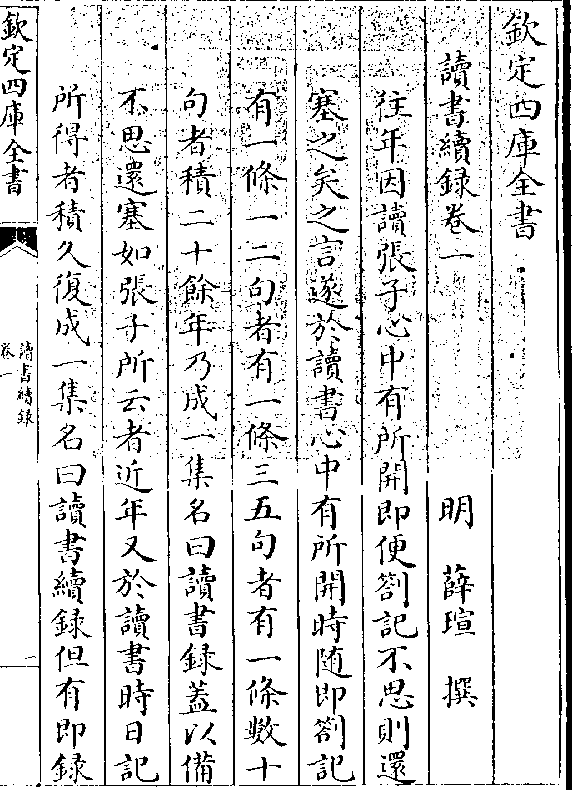 欽定四庫全書
讀書續録卷一
明 薛瑄 撰
往年因讀張子心中有所開即便劄記不思則還
塞之矣之言遂於讀書心中有所開時随即劄記
有一條一二句者有一條三五句者有一條數十
句者積二十餘年乃成一集名曰讀書録蓋以備
不思還塞如張子所云者近年又於讀書時日記
所得者積久復成一集名曰讀書續録但有即録
欽定四庫全書
讀書續録
卷一
一